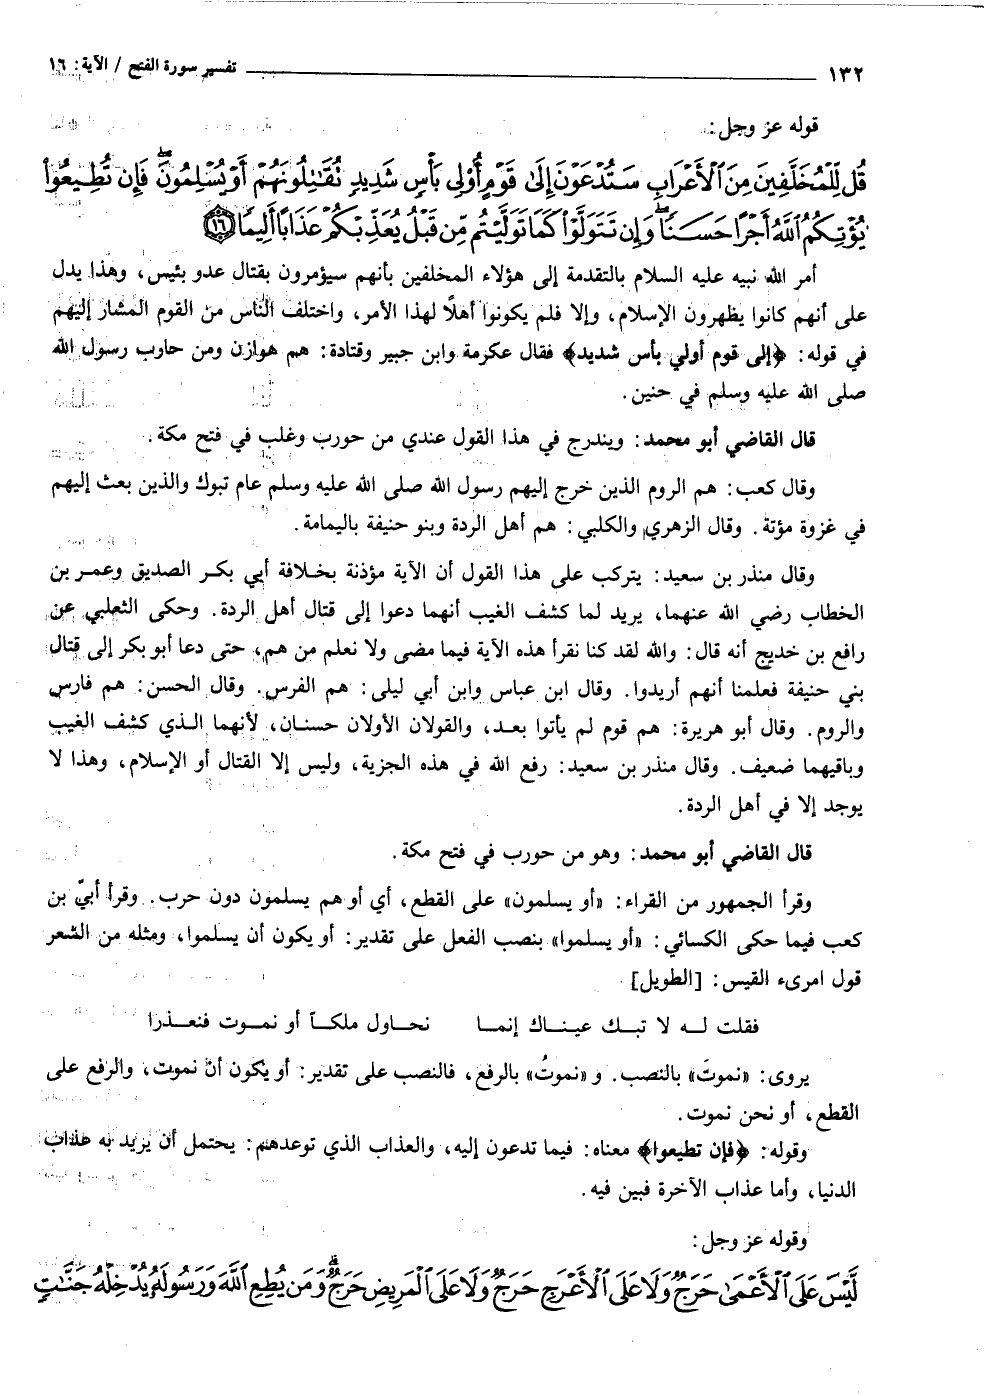 ١٣٢ ــــــ تفسير سورة الفتح / الآية: ١٦
قوله عز وجل:
قُل لِّلْمُخَلَّفِينَ مِنَ ٱلْأَعْرَابِ سَتُدْعَوْنَ إِلَىٰ قَوْمٍ أُو۟لِى بَأْسٍ شَدِيدٍ تُقَـٰتِلُونَهُمْ أَوْ يُسْلِمُونَ ۖ فَإِن تُطِيعُوا۟
يُؤْتِكُمُ ٱللَّهُ أَجْرًا حَسَنًا ۖ وَإِن تَتَوَلَّوْا۟ كَمَا تَوَلَّيْتُم مِّن قَبْلُ يُعَذِّبْكُمْ عَذَابًا أَلِيمًا ﴿١٦﴾
أمر الله نبيه عليه السلام بالتقدمة إلى هؤلاء المخلفين بأنهم سيؤمرون بقتال عدو بئيس، وهذا يدل
على أنهم كانوا يظهرون الإسلام، وإلا فلم يكونوا أهلًا لهذا الأمر، واختلف الناس من القوم المشار إليهم
في قوله: ﴿إلى قوم أولي بأس شديد﴾ فقال عكرمة وابن جبير وقتادة: هم هوازن ومن حاوب رسول الله
صلى الله عليه وسلم في حنين.
قال القاضي أبو محمد: ويندرج في هذا القول عندي من حورب وغلب في فتح مكة.
وقال كعب: هم الروم الذين خرج إليهم رسول الله صلى الله عليه وسلم عام تبوك والذين بعث إليهم
في غزوة مؤتة. وقال الزهري والكلبي: هم أهل الردة وبنو حنيفة باليمامة.
وقال منذر بن سعيد: يتركب على هذا القول أن الآية مؤذنة بخلافة أبي بكر الصديق وعمر بن
الخطاب رضي الله عنهما، يريد لما كشف الغيب أنهما دعوا إلى قتال أهل الردة. وحكى الثعلبي عن
رافع بن خديج أنه قال: والله لقد كنا نقرأ هذه الآية فيما مضى ولا نعلم من هم، حتى دعا أبو بكر إلى قتال
بني حنيفة فعلمنا أنهم أريدوا. وقال ابن عباس وابن أبي ليلى: هم الفرس. وقال الحسن: هم فارس
والروم. وقال أبو هريرة: هم قوم لم يأتوا بعد، والقولان الأولان حسنان، لأنهما الذي كشف الغيب
وباقيهما ضعيف. وقال منذر بن سعيد: رفع الله في هذه الجزية، وليس إلا القتال أو الإسلام، وهذا لا
يوجد إلا في أهل الردة.
قال القاضي أبو محمد: وهو من حورب في فتح مكة.
وقرأ الجمهور من القراء: «أو يسلمون» على القطع، أي أو هم يسلمون دون حرب. وقرأ أبيّ بن
كعب فيما حكى الكسائي: «أو يسلموا» بنصب الفعل على تقدير: أو يكون أن يسلموا، ومثله من الشعر
قول امرىء القيس: [الطويل]
فقلت له لا تبك عيناك إنما نحاول ملكاً أو نموت فنعذرا
يروى: «نموتَ» بالنصب. و «نموتُ» بالرفع، فالنصب على تقدير: أو يكون أن نموت، والرفع على
القطع، أو نحن نموت.
وقوله: ﴿فإن تطيعوا﴾ معناه: فيما تدعون إليه، والعذاب الذي توعدهم: يحتمل أن يريد به عذاب
الدنيا، وأما عذاب الآخرة فبين فيه.
وقوله عز وجل:
لَّيْسَ عَلَى ٱلْأَعْمَىٰ حَرَجٌ وَلَا عَلَى ٱلْأَعْرَجِ حَرَجٌ وَلَا عَلَى ٱلْمَرِيضِ حَرَجٌ ۗ وَمَن يُطِعِ ٱللَّهَ وَرَسُولَهُۥ يُدْخِلْهُ جَنَّـٰتٍ